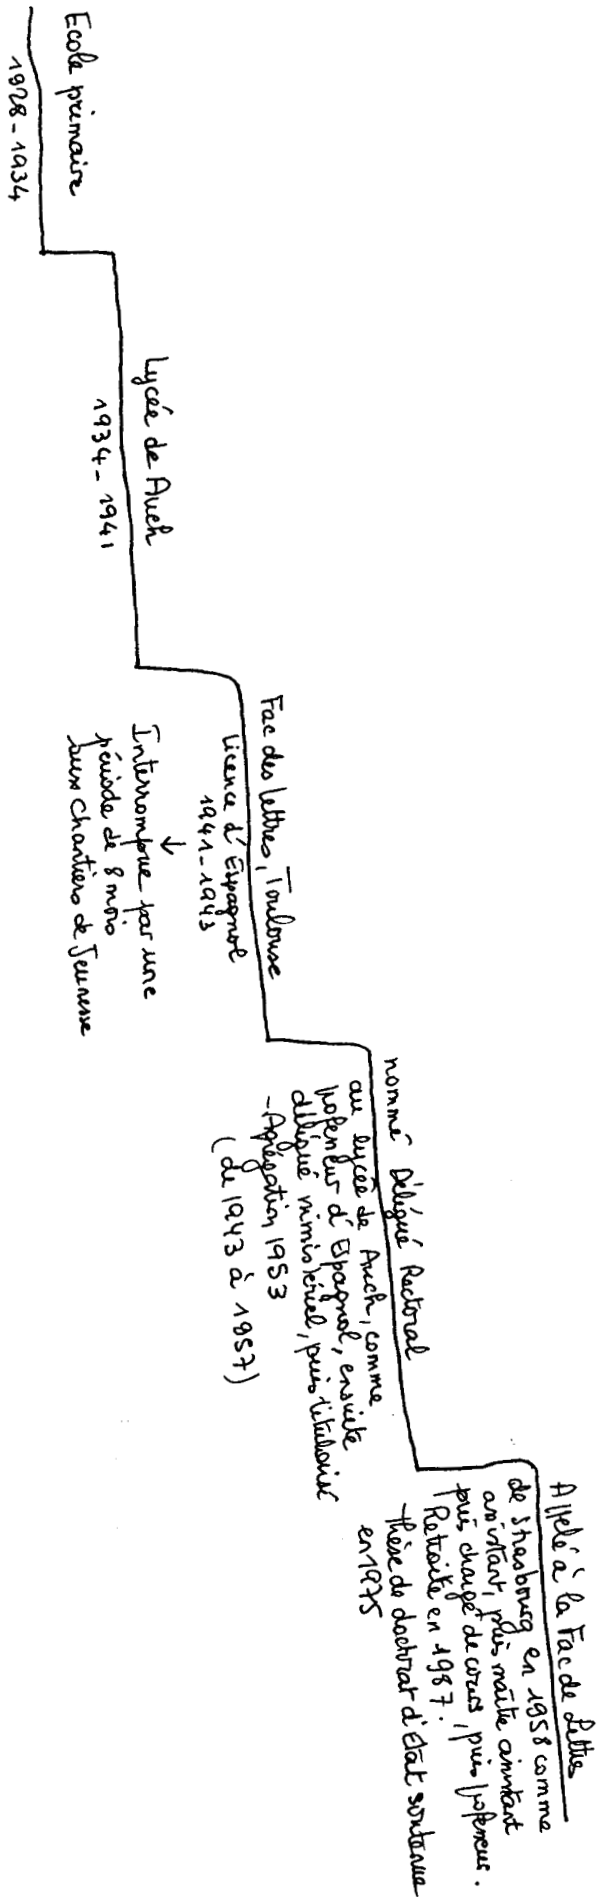 Ecole primaire
1928-1934
Lycée de Auch
1934-1941
Fac des lettres, Toulouse
Licence d'Espagnol
1941-1943
↓
Interrompue par une
période de 8 mois
aux Chantiers de Jeunesse
nommé Délégué Rectoral
au lycée de Auch, comme
professeur d'Espagnol, ensuite
délégué ministériel, puis titularisé
-Agrégation 1953
(de 1943 à 1957)
Appelé à la Fac de Lettres
de Strasbourg en 1958 comme
assistant, puis maître assistant
puis chargé de cours, puis professeur.
Retraite en 1987.
-Thèse de doctorat d'Etat soutenue
en 1975